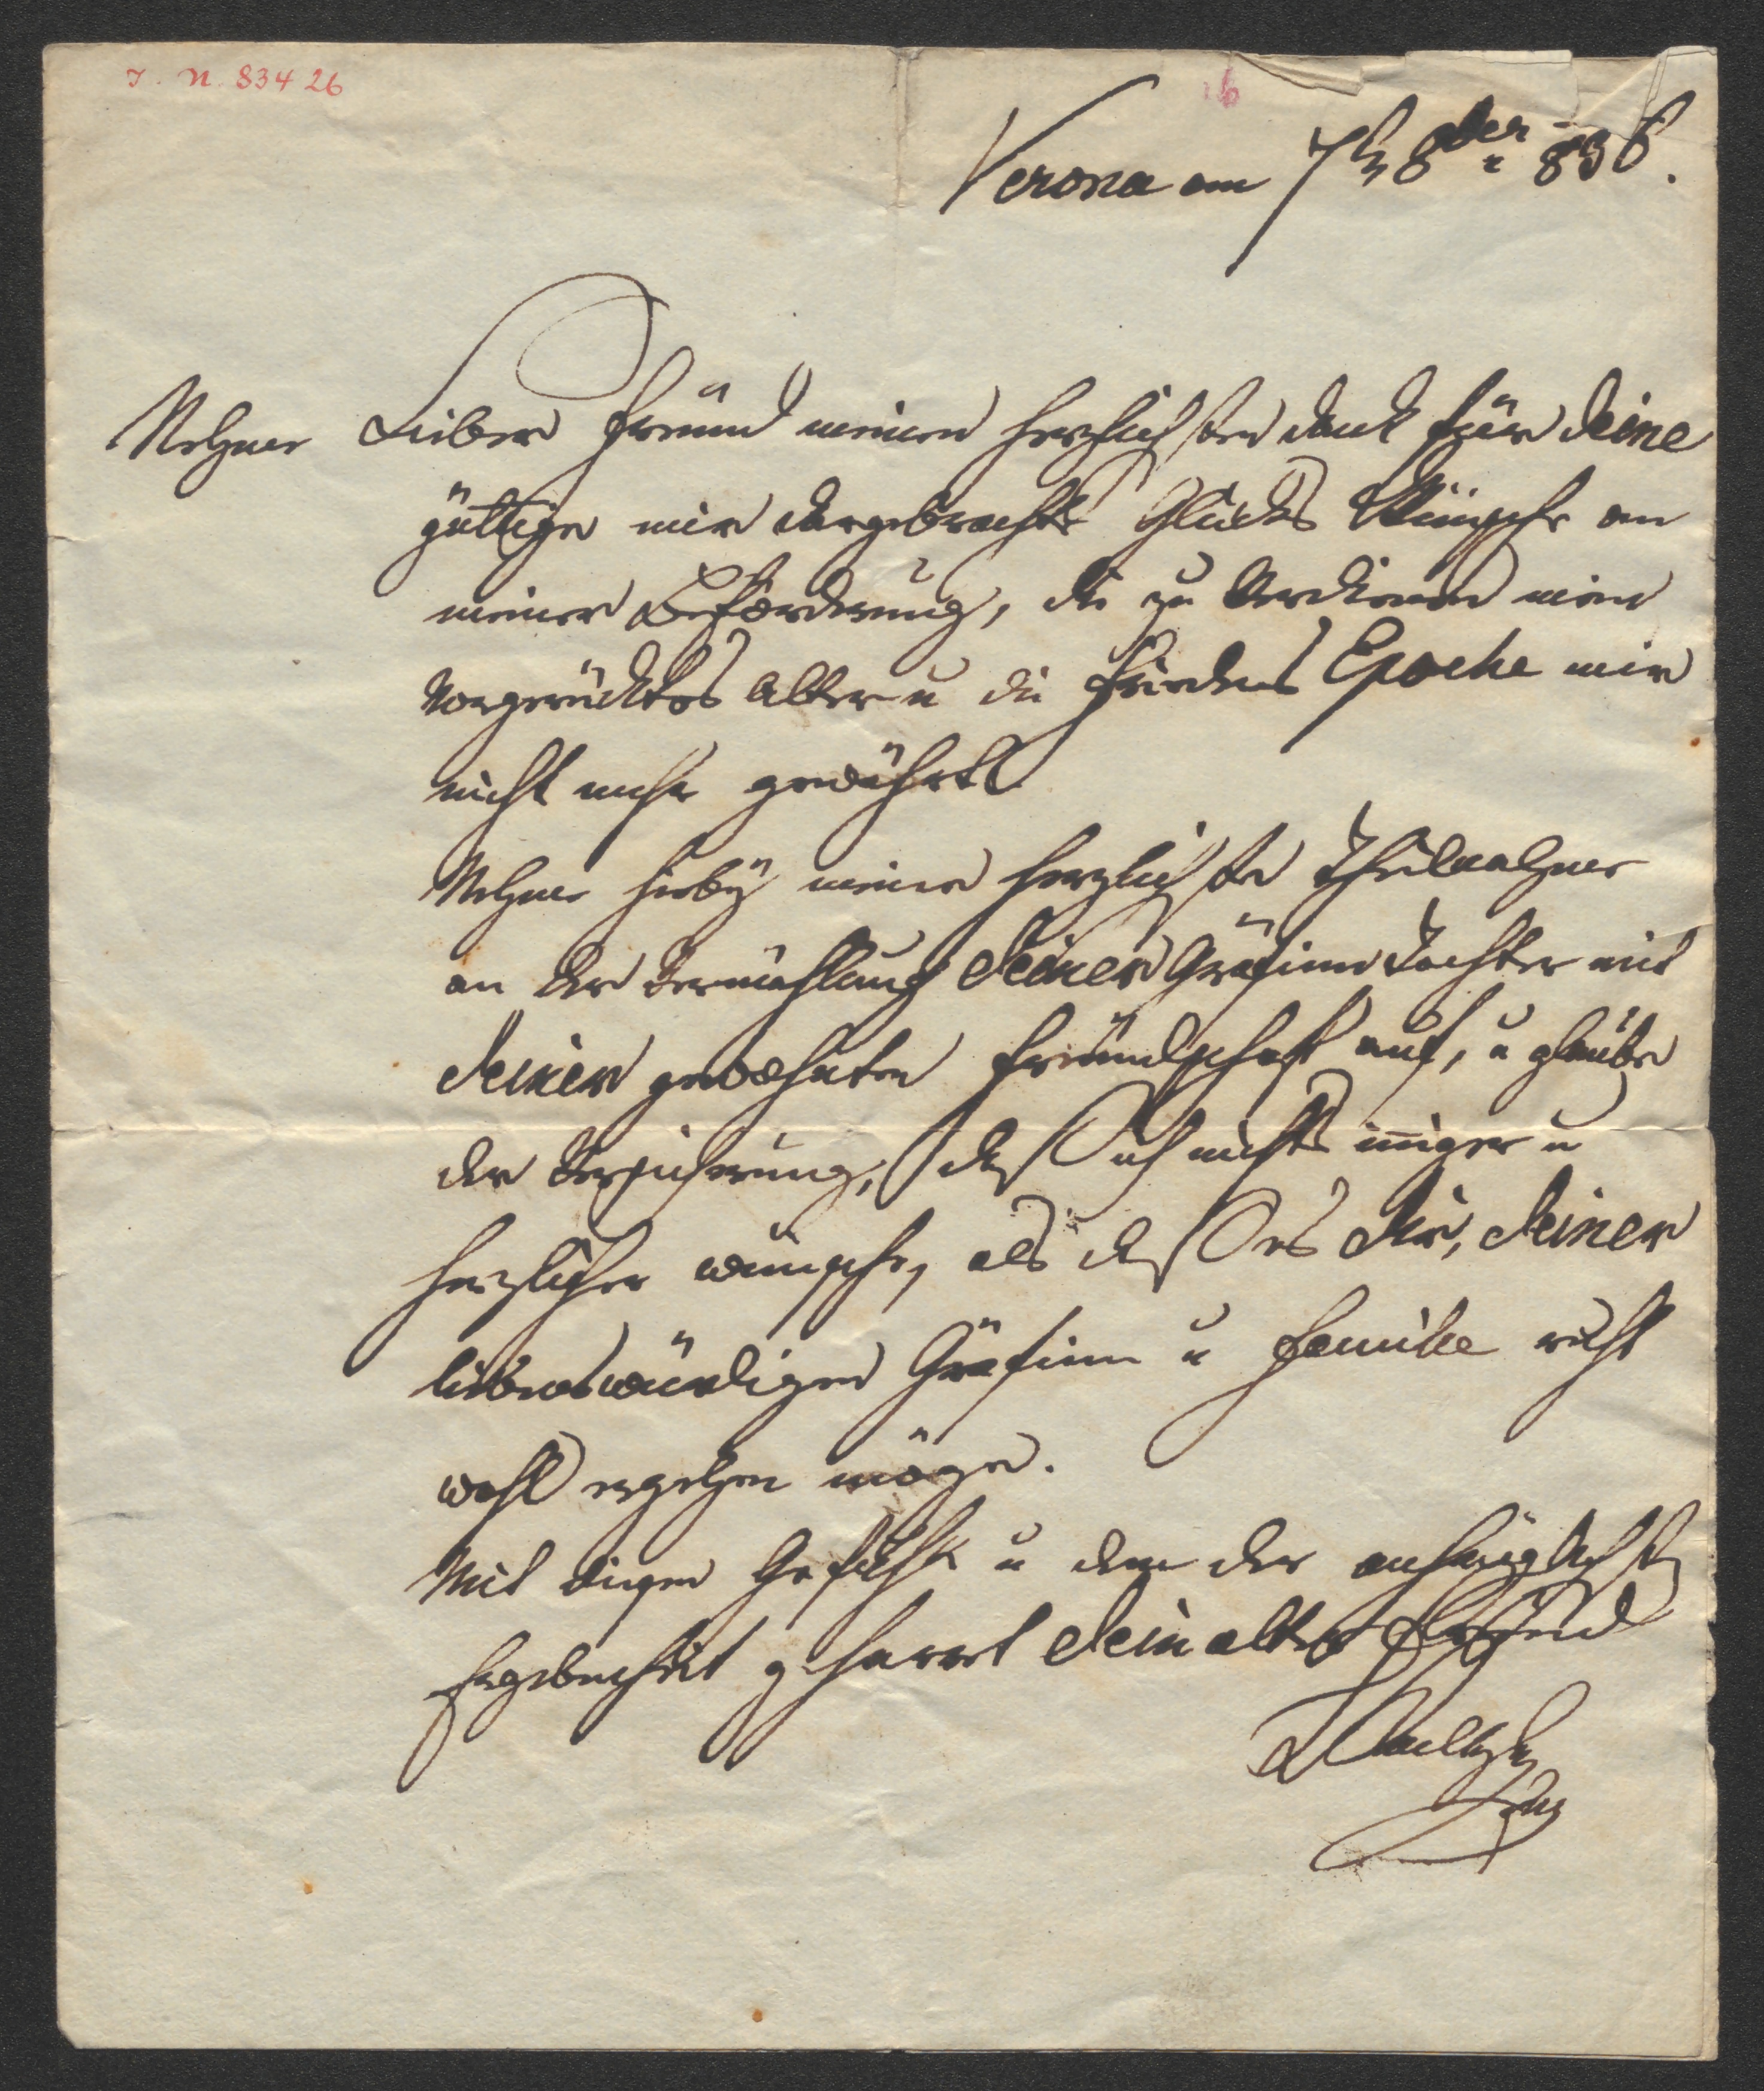 I. N. 83426
Verona am 7t 8ber 836.
Nehme Lieber Freünd meinen herzlichsten Dank für Deine
güttige mir dargebrachte Glücks Wünsche an
meiner Beförderung, die zu Verdienen mein
Vorgerücktes Alter u die Friedens Epoche mir
nicht mehr gewährt
Nehme hirbeÿ meine herzlichste Theilnahme
an der Vermählung Deiner Gräfinn Tochter mit
Deiner gewohnten Freündschaft auf, u glaube
der Versicherung, daß ich nichts inniger u
herzlicher wünsche, als daß es Dir, Deiner
liebenswürdigen Gräfinn u Familie recht
wohl ergehen möge.
Mit diesen Gefühle u dem der anhänglichst
Ergebenheit geharrt Dein alter Freünd